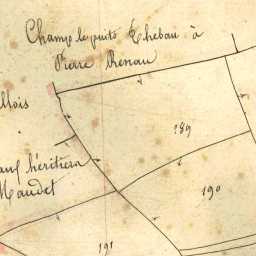 Champ le puits Thebau à
Pierre Renau
llois
189
auf héritiers
Maudet
190
191